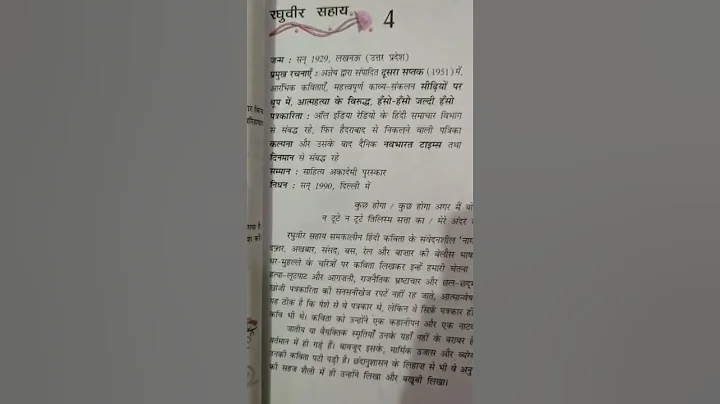 रघुवीर सहाय
4
जन्म : सन् 1929, लखनऊ (उत्तर प्रदेश)
प्रमुख रचनाएँ : अज्ञेय द्वारा संपादित दूसरा सप्तक (1951) में,
आरंभिक कविताएँ, महत्त्वपूर्ण काव्य-संकलन सीढ़ियों पर
धूप में, आत्महत्या के विरुद्ध, हँसो-हँसो जल्दी हँसो
पत्रकारिता : ऑल इंडिया रेडियो के हिंदी समाचार विभाग
से संबद्ध रहे, फिर हैदराबाद से निकलने वाली पत्रिका
कल्पना और उसके बाद दैनिक नवभारत टाइम्स तथा
दिनमान से संबद्ध रहे
सम्मान : साहित्य अकादेमी पुरस्कार
निधन : सन् 1990, दिल्ली में
कुछ होगा / कुछ होगा अगर मैं
न टूटे न टूटे तिलिस्म सत्ता का / मेरे अंदर
रघुवीर सहाय समकालीन हिंदी कविता के संवेदनशील
दफ़्तर, अखबार, संसद, बस, रेल और बाज़ार की बेलौस
घर-मुहल्ले के चरित्रों पर कविता लिखकर इन्हें हमारी चेतना
हत्या-लूटपाट और आगजनी, राजनैतिक भ्रष्टाचार और
खोजी पत्रकारिता की सनसनीखेज रपटें नहीं रह जाते,
यह ठीक है कि पेशे से वे पत्रकार थे, लेकिन वे सिर्फ़ पत्रकार
कवि भी थे। कविता को उन्होंने एक कहानीपन और एक
जातीय या वैयक्तिक स्मृतियाँ उनके यहाँ नहीं के बराबर
वर्तमान में ही गड़े हैं। बावजूद इसके, मार्मिक उजास और
उनकी कविता पटी पड़ी है। छंदानुशासन के लिहाज़ से भी वे
की सहज शैली में ही उन्होंने लिखा और बखूबी लिखा।